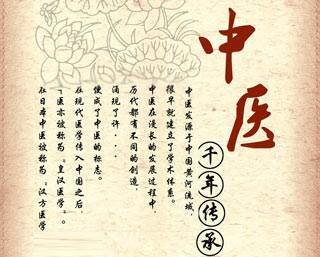 中医
千年传承
中医发源于中国黄河流域，
很早就建立了学术体系。
中医在漫长的发展过程中，
历代都有不同的创造，
涌现了许...
便成了中医的标志。
在现代医学传入中国之后，
『医亦被称为『皇汉医学』。
在日本中医被称为『汉方医学